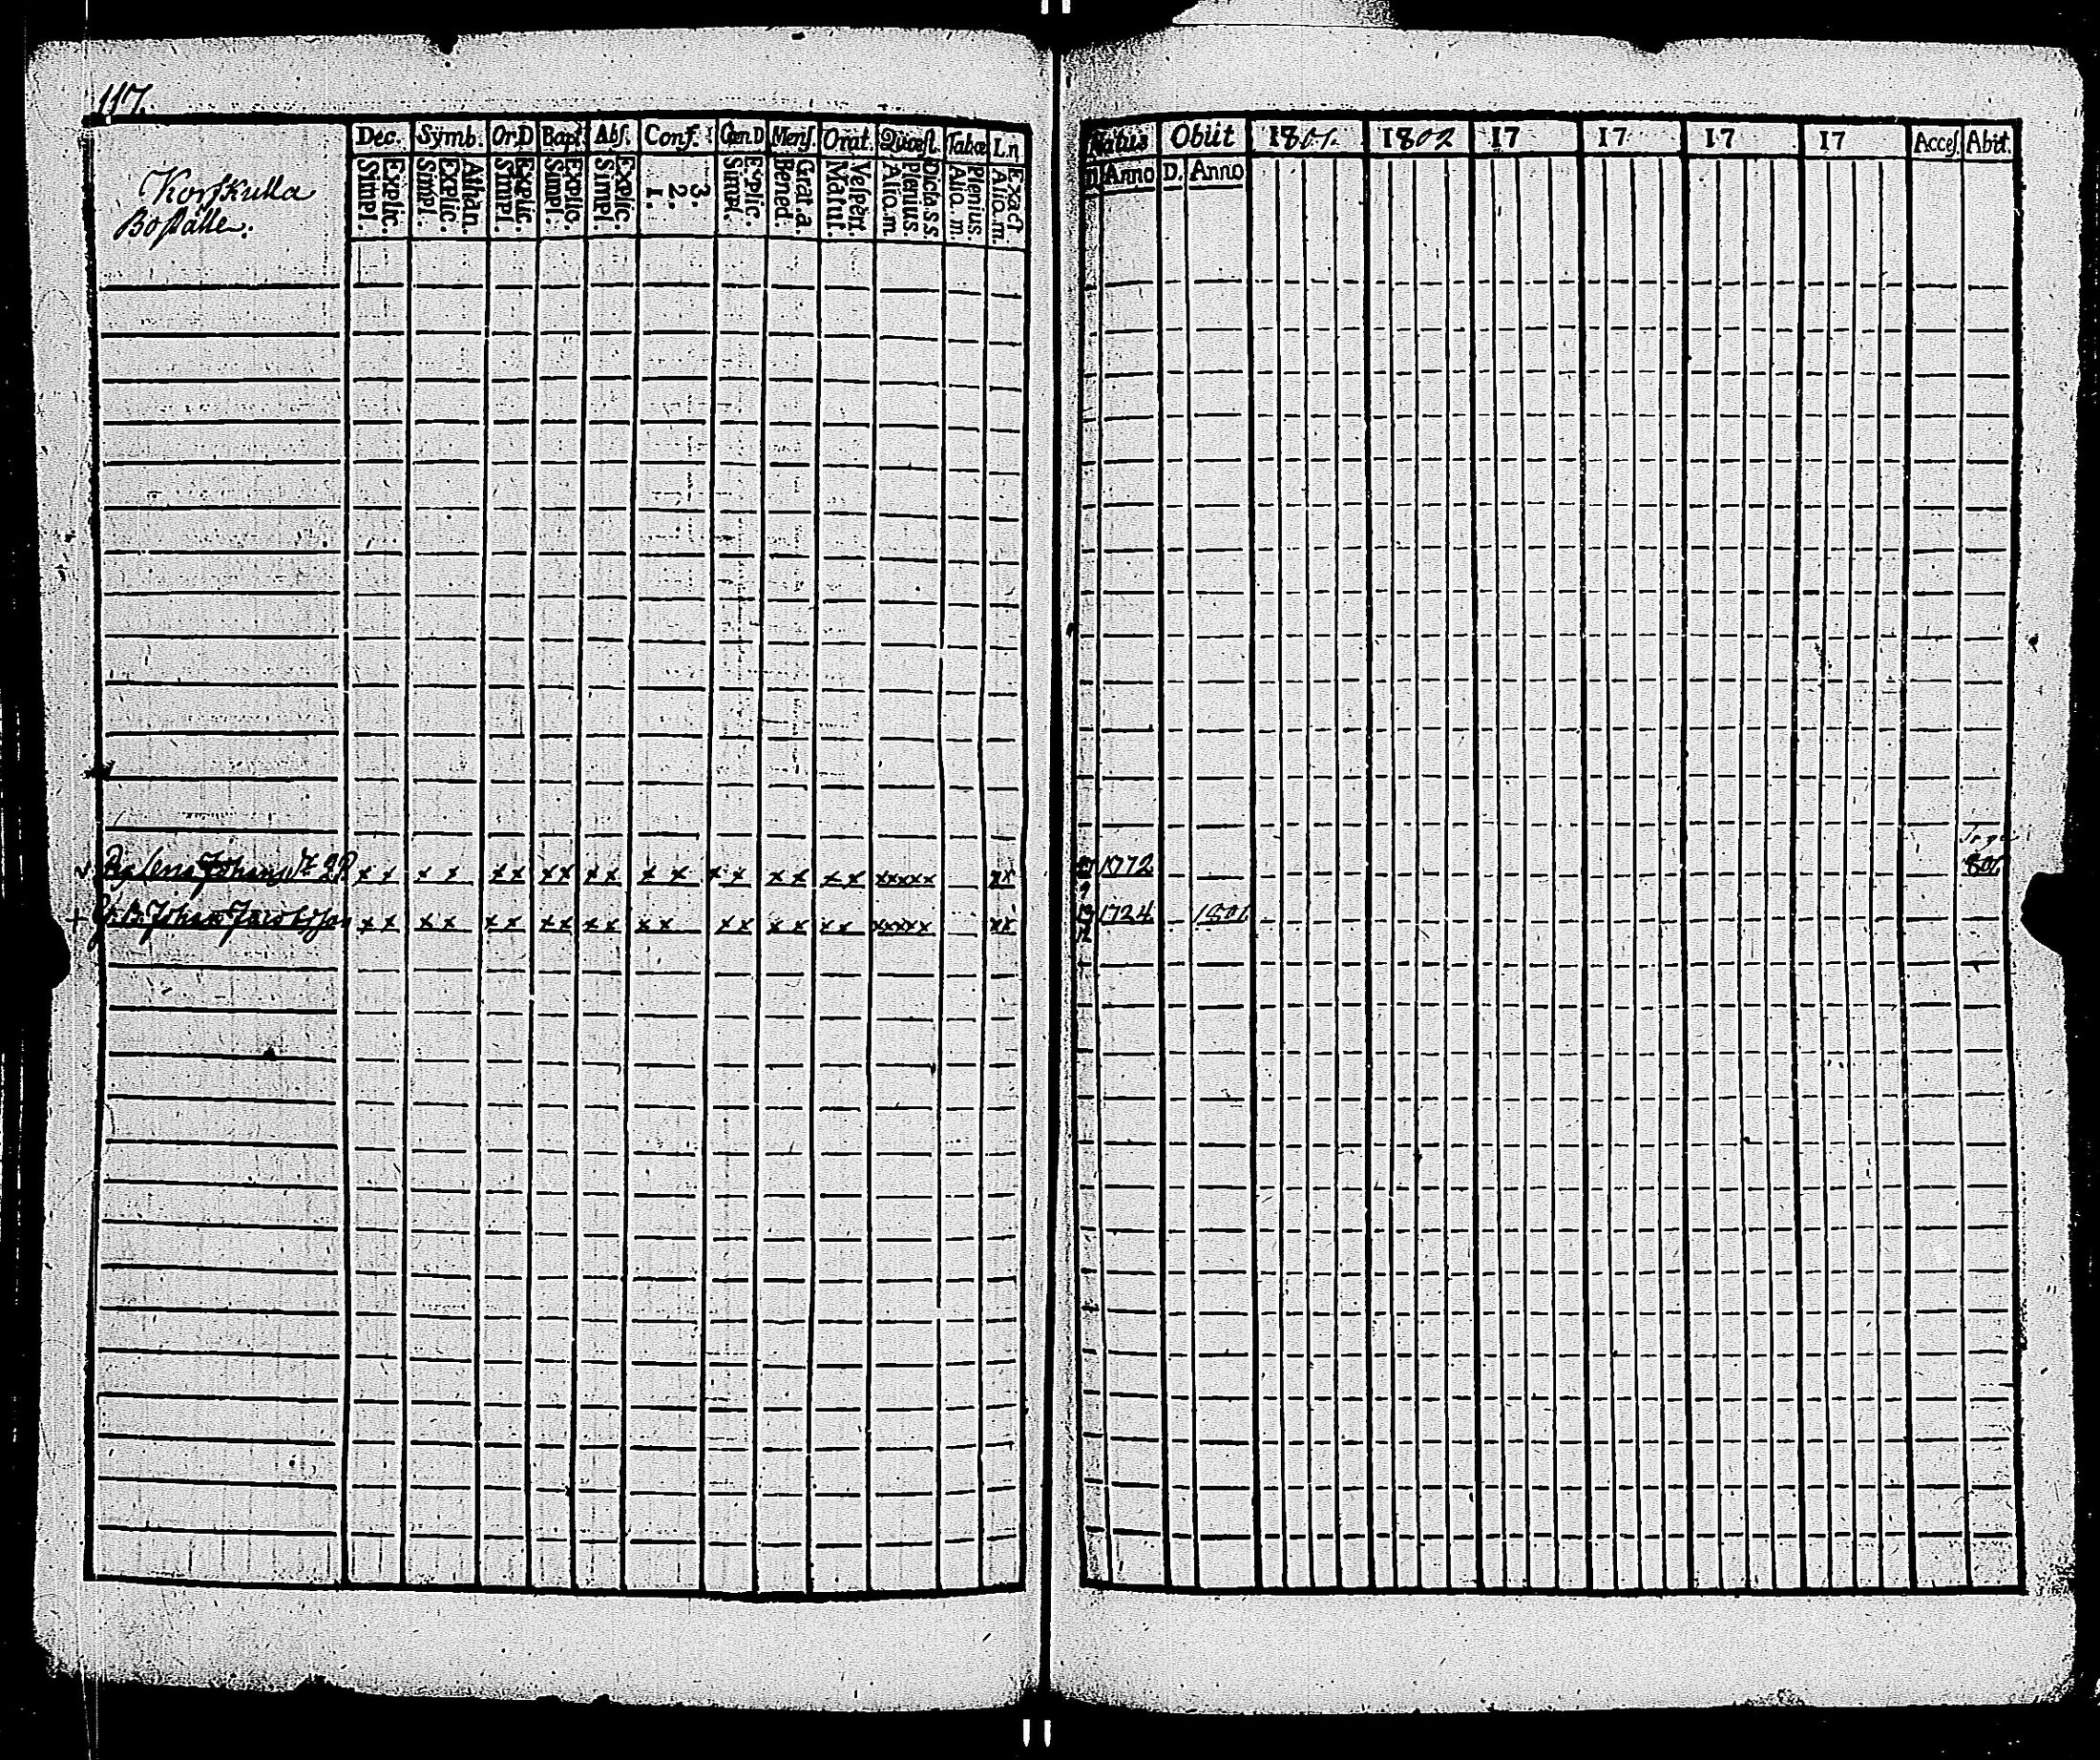 117.
Dec. Symb. Or.D Bapt. Abſ. Conf. Cœn D Menſ. Orat. Quæſt. Tabæ Ln
Korſkulla
Boſtälle.
Simpl. Explic. Simpl. Explic. Athan. Simpl. Explic. Simpl. Explic. Simpl. Explic. 1. 2. 3. Simpl. Explic. Bened. Grat.a. Matut. Veſpert Alio.m Plenius Dicta.s.s. Alio.m. Plenius. Alio.m. Exact
Johan x x x x x x x x x x x x x x x x x x xxxxx xx
Johan Jacobsson x x x x x x x x x x x x x x x x x x xxxxx xx
Natus Obiit 1801. 1802 17 17 17 17 Acceſ. Abit.
Anno D. Anno
1772 801
1724 1801